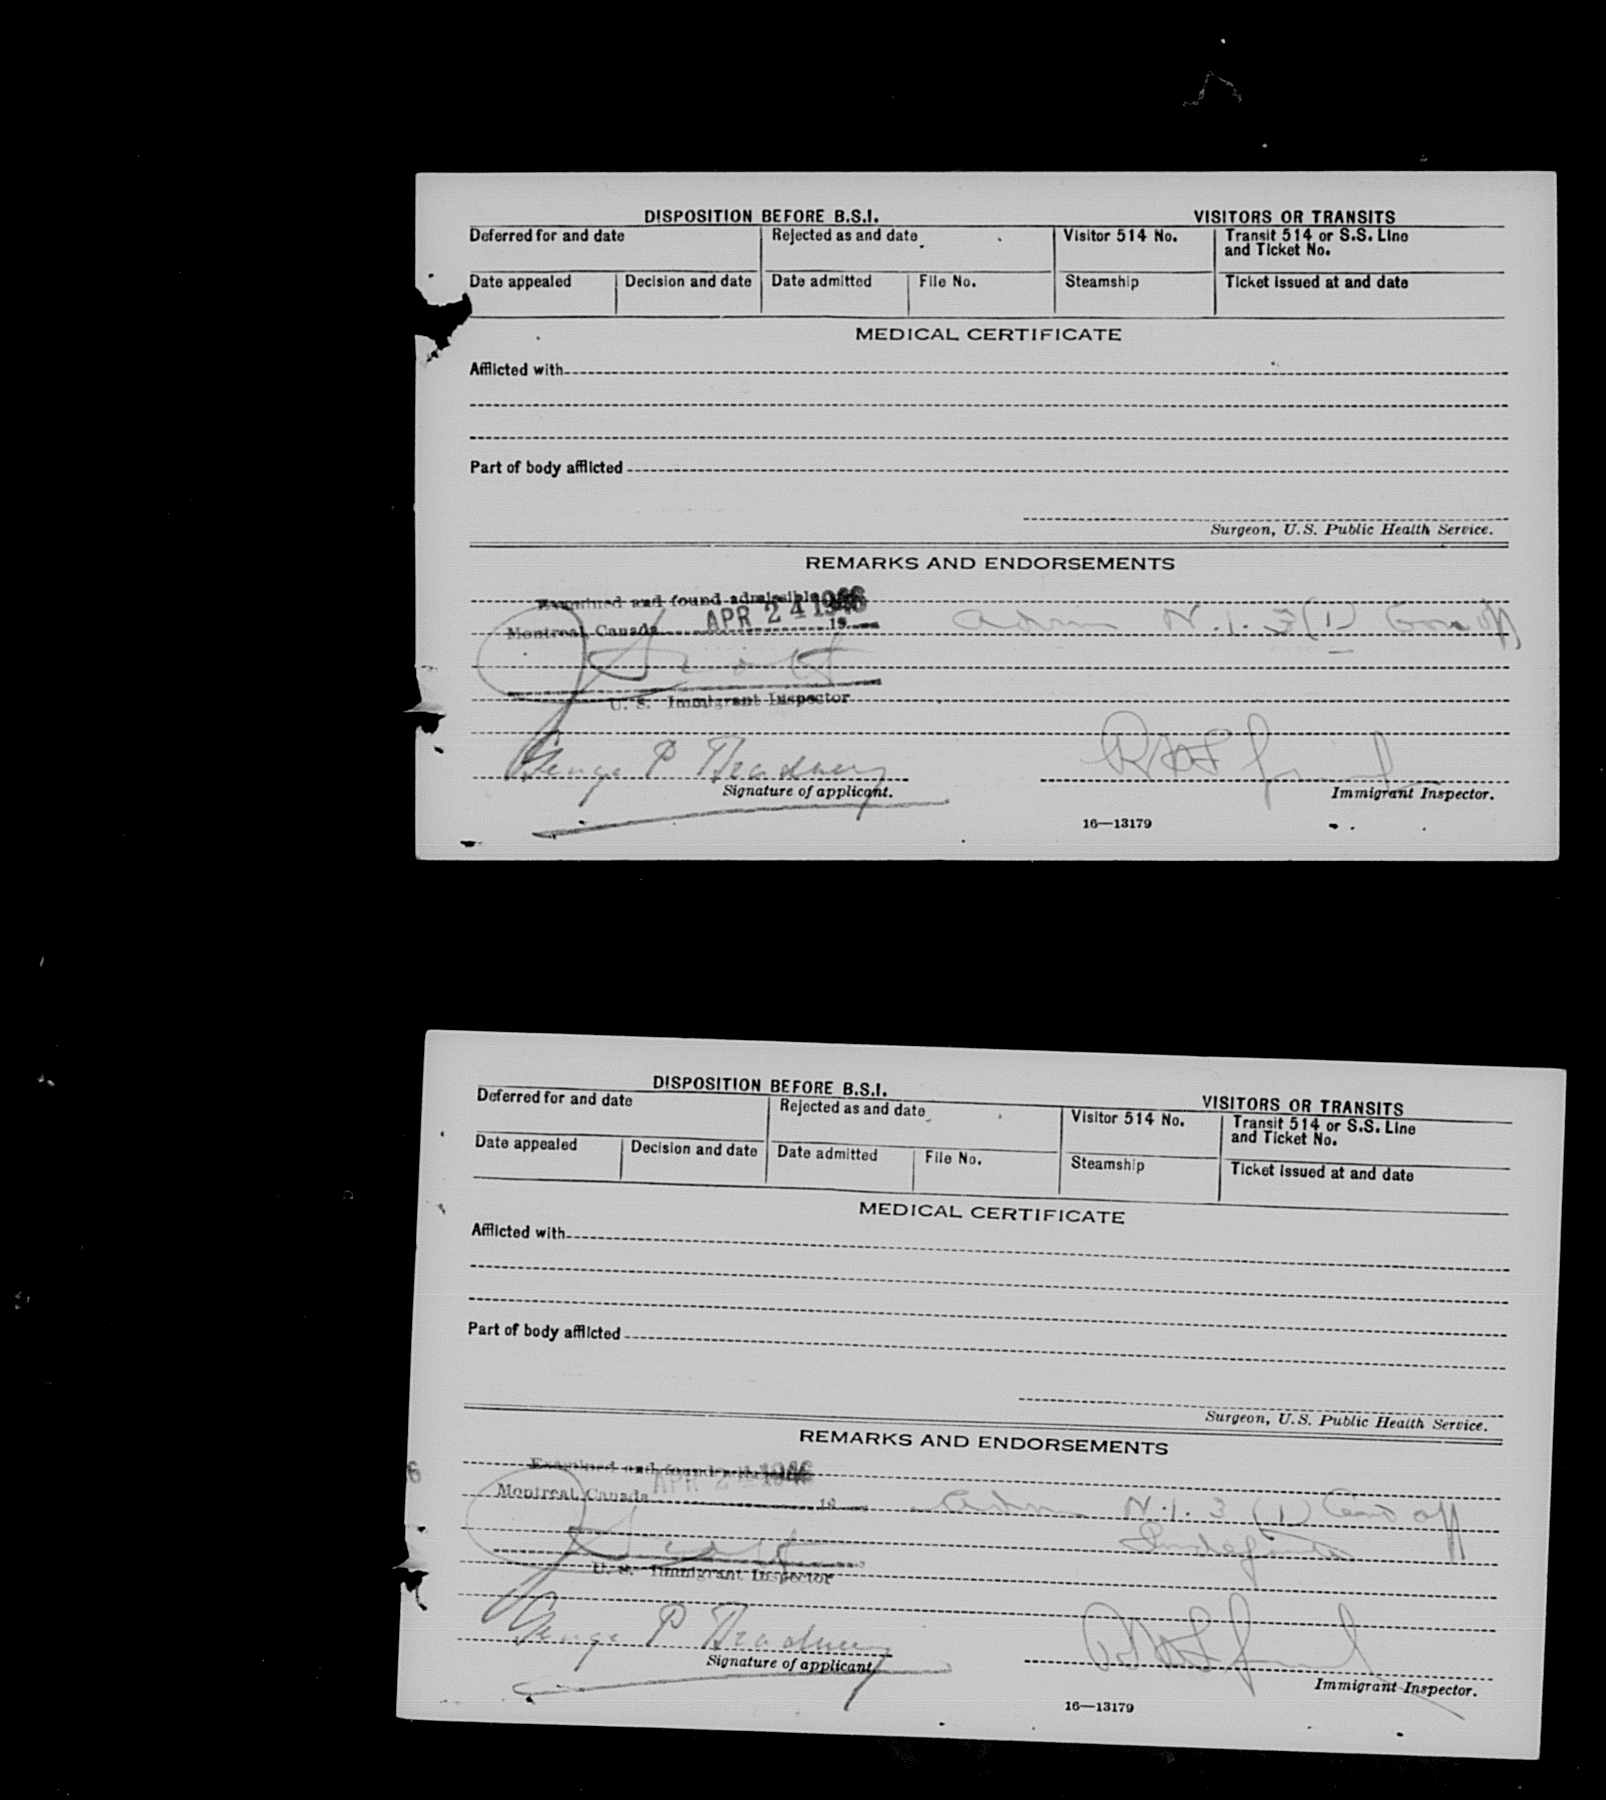 DISPOSITION BEFORE B.S.I. VISITORS OR TRANSITS
Deferred for and date Rejected as and date Visitor 514 No. Transit 514 or S.S. Line
and Ticket No.
Date appealed Decision and date Date admitted File No. Steamship Ticket issued at and date
MEDICAL CERTIFICATE
Afflicted with
Part of body afflicted
Surgeon, U.S. Public Health Service.
REMARKS AND ENDORSEMENTS
Examined and found admissible
APR 24 1946
Montreal, Canada 19 Adm N.I. 3(1)
U. S. Immigrant Inspector
George P
Signature of applicant. Immigrant Inspector.
16—13179
DISPOSITION BEFORE B.S.I. VISITORS OR TRANSITS
Deferred for and date Rejected as and date Visitor 514 No. Transit 514 or S.S. Line
and Ticket No.
Date appealed Decision and date Date admitted File No. Steamship Ticket issued at and date
MEDICAL CERTIFICATE
Afflicted with
Part of body afflicted
Surgeon, U.S. Public Health Service.
REMARKS AND ENDORSEMENTS
Examined and found
APR 1946
Montreal, Canada 19 Adm N.I. 3 (1)
U. S. Immigrant Inspector
George P
Signature of applicant. Immigrant Inspector.
16—13179